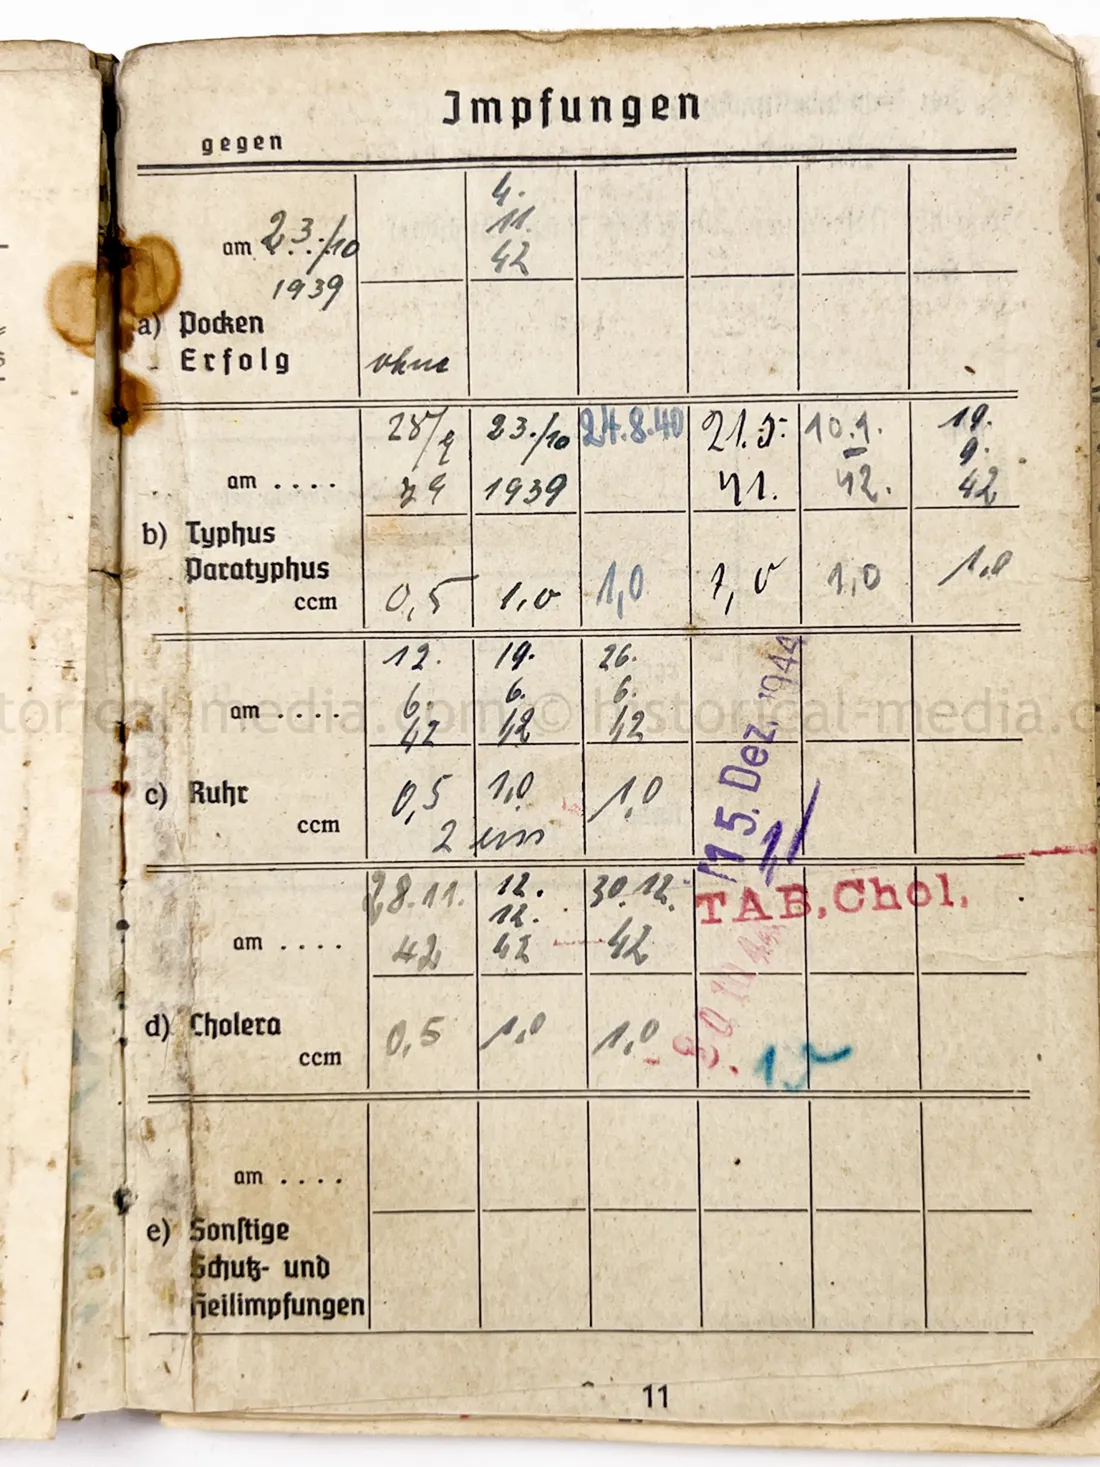 Impfungen
gegen
4.
11.
42
am 23./10
1939
a) Pocken
Erfolg ohne
23./10 24.8.40 21.5. 10.1. 19.
9.
am .... 1939 41. 42. 42
b) Typhus
Paratyphus
ccm 0,5 1,0 1,0 1,0 1,0 1,0
12. 19. 26.
6. 6. 6.
am .... 42 42 42
historical-media.com © historical-media.c
c) Ruhr
ccm 0,5 1,0 1,0
2
15. Dez. 1944
28.11. 12. 30.12.
12.
am .... 42 42 42
TAB, Chol.
d) Cholera
ccm 0,5 1,0 1,0
am ....
e) Sonstige
Schutz- und
Heilimpfungen
11